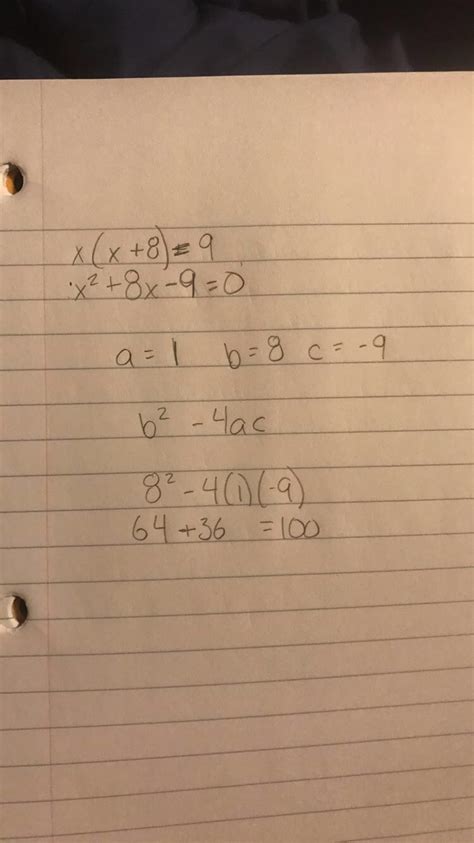 x(x+8)=9
x²+8x-9=0
a=1 b=8 c=-9
b² -4ac
8²-4(1)(-9)
64+36 =100